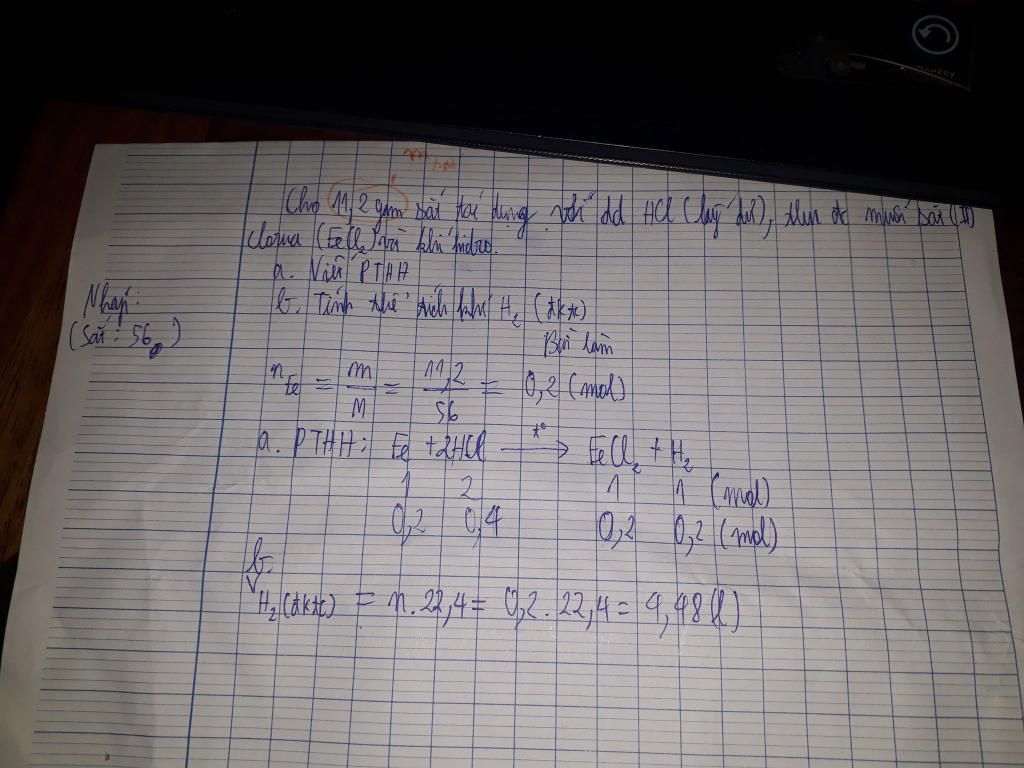 m
Cho 11,2 gam sắt tác dụng với dd HCl (lấy dư), thu đc muối sắt (II)
clorua (FeCl₂) và khí hiđro.
a. Viết PTHH
b. Tính thể tích khí H₂ (đktc)
Nháp:
(Sắt: 56)
Bài làm
n Fe = m/M = 11,2/56 = 0,2 (mol)
a. PTHH: Fe + 2HCl —t°→ FeCl₂ + H₂
1 2 1 1 (mol)
0,2 0,4 0,2 0,2 (mol)
b.
V H₂(đktc) = n.22,4 = 0,2.22,4 = 4,48(l)